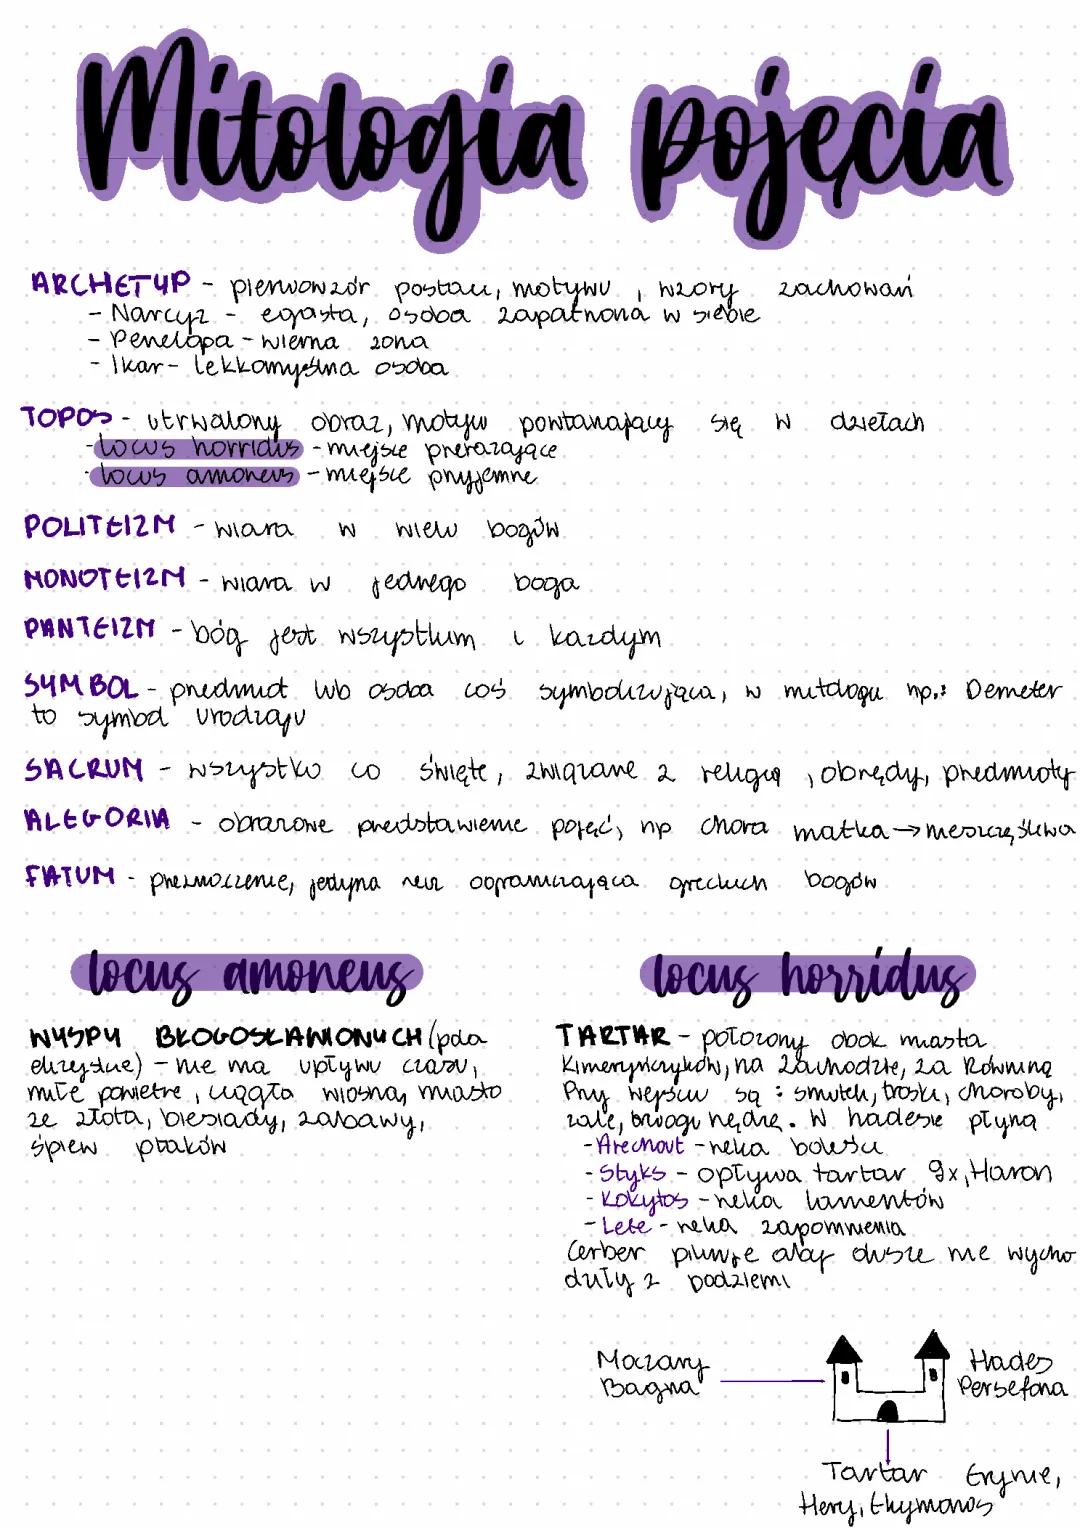 Mitologia pojęcia
ARCHETYP - pierwowzór postaci, motywu, wzory zachowań
- Narcyz - egoista, osoba zapatrzona w siebie
- Penelopa - wierna żona
- Ikar - lekkomyślna osoba
TOPOS - utrwalony obraz, motyw powtarzający się w dziełach
- locus horridus - miejsce przerażające
- locus amoneus - miejsce przyjemne
POLITEIZM - wiara w wielu bogów
MONOTEIZM - wiara w jednego boga
PANTEIZM - bóg jest wszystkim i każdym
SYMBOL - przedmiot lub osoba coś symbolizująca, w mitologii np.: Demeter
to symbol urodzaju
SACRUM - wszystko co święte, związane z religią, obrzędy, przedmioty
ALEGORIA - obrazowe przedstawienie pojęć, np chora matka → nieszczęśliwa
FATUM - przeznaczenie, jedyna rzecz ograniczająca greckich bogów
locus amoneus
WYSPY BŁOGOSŁAWIONYCH (pola
elizejskie) - nie ma upływu czasu,
miłe powietrze, ciągła wiosna, miasto
ze złota, biesiady, zabawy,
śpiew ptaków
locus horridus
TARTAR - położony obok miasta
na zachodzie, za Równiną
Przy wejściu są: smutek, troski, choroby,
żale, nędzne. W hadesie płyną
- Arechout - rzeka boleści
- Styks - opływa tartar 9x, Haron
- Kokytos - rzeka lamentów
- Lete - rzeka zapomnienia
Cerber pilnuje aby dusze nie wycho
dziły z podziemi
Moczary
Bagna
Hades
Persefona
Tartar Erynie,
Hery,